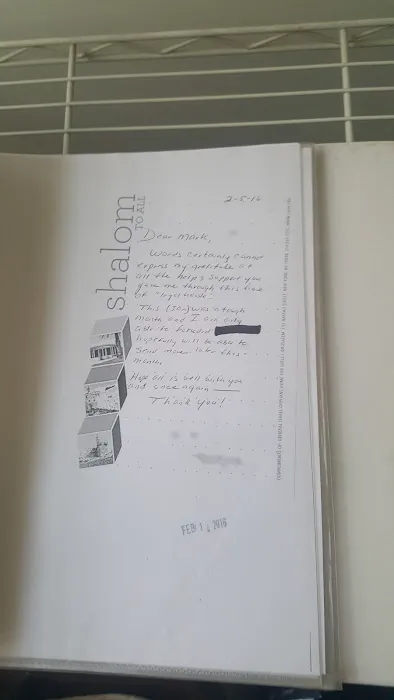 shalom
TO ALL
2-5-16
Dear Mark,
Words certainly cannot
express my gratitude at
all the help & support you
gave me through this time
of "
This (Jan) was a tough
month and I am only
able to forward
hopefully will be able to
send more later this
month.
Hope all is well with you
and once again
Thank you!
FEB 1 2016